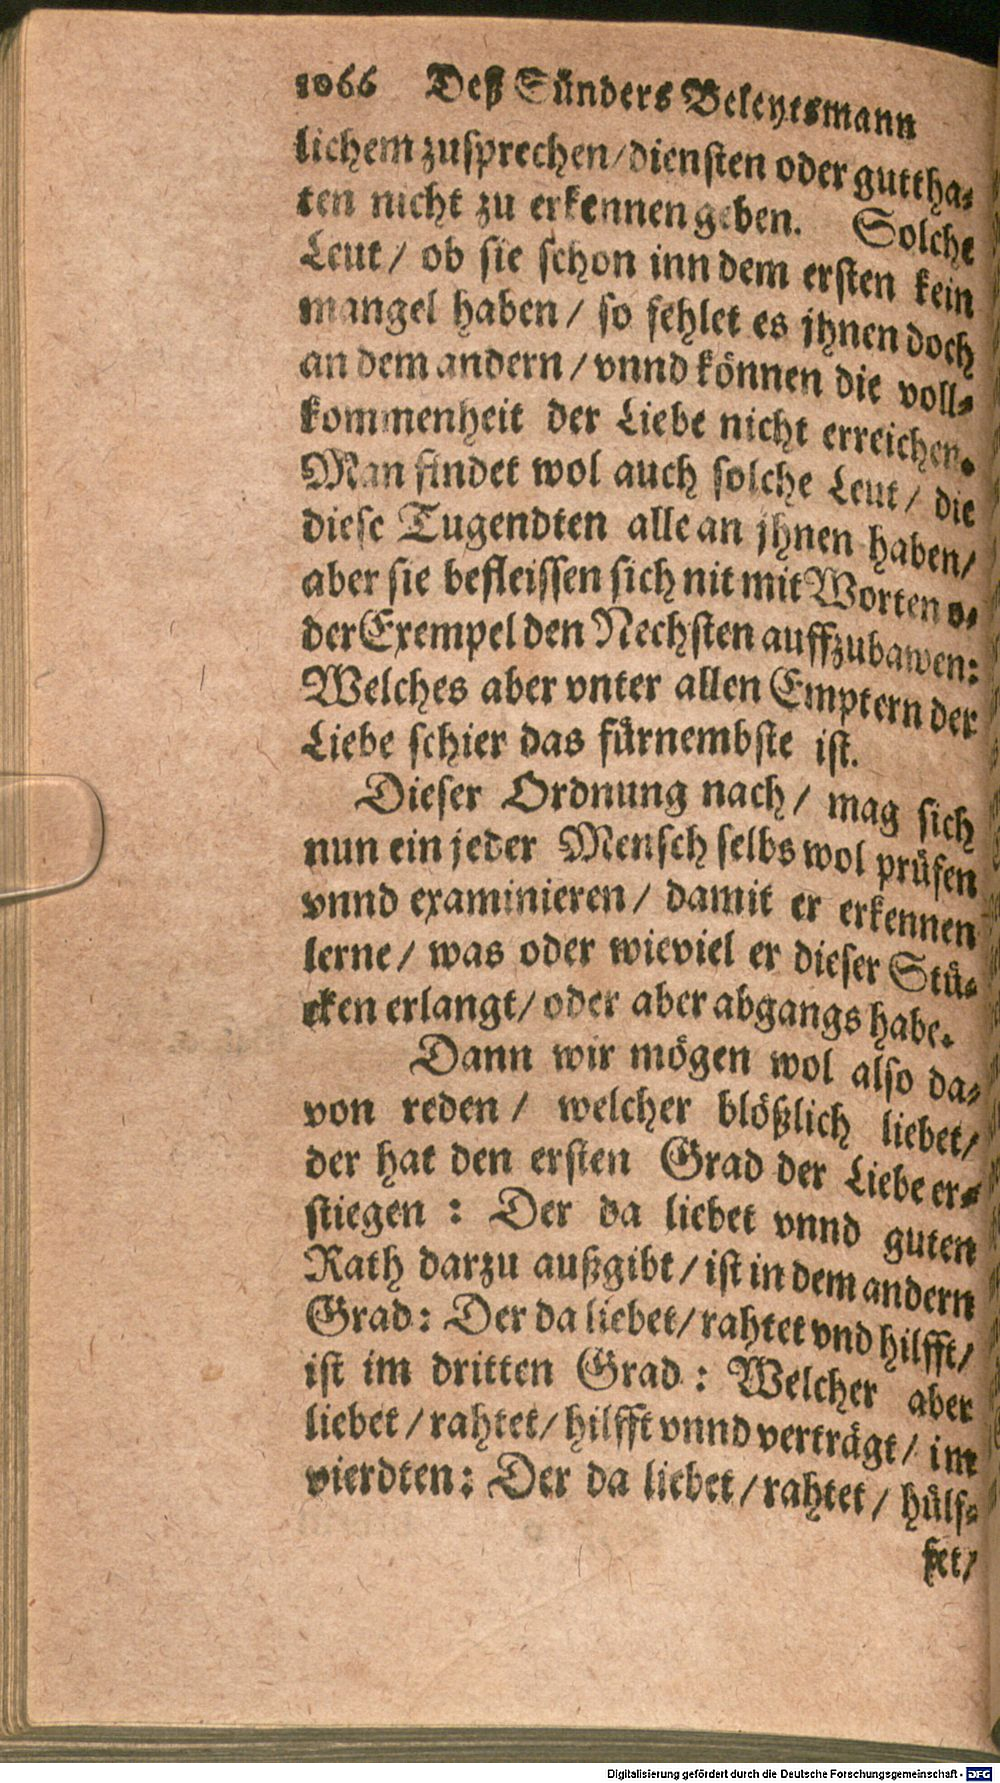 1066 Deß Sünders Beleytsmann
lichem zusprechen/diensten oder guttha⸗
ten nicht zu erkennen geben. Solche
Leut/ ob sie schon inn dem ersten kein
mangel haben/ so fehlet es jhnen doch
an dem andern/ vnnd können die voll⸗
kommenheit der Liebe nicht erreichen.
Man findet wol auch solche Leut/ die
diese Tugendten alle an jhnen haben/
aber sie befleissen sich nit mit Worten o⸗
der Exempel den Nechsten auffzubawen:
Welches aber vnter allen Emptern der
Liebe schier das fürnembste ist.
Dieser Ordnung nach/ mag sich
nun ein jeder Mensch selbs wol prüfen
vnnd examinieren/ damit er erkennen
lerne/ was oder wieviel er dieser Stü⸗
cken erlangt/ oder aber abgangs habe.
Dann wir mögen wol also da⸗
von reden/ welcher blößlich liebet/
der hat den ersten Grad der Liebe er⸗
stiegen: Der da liebet vnnd guten
Rath darzu außgibt/ ist in dem andern
Grad: Der da liebet/ rahtet vnd hilfft/
ist im dritten Grad: Welcher aber
liebet/ rahtet/ hilfft vnnd verträgt/ im
vierdten: Der da liebet/ rahtet/ hülf⸗
fet/
Digitalisierung gefördert durch die Deutsche Forschungsgemeinschaft - DFG